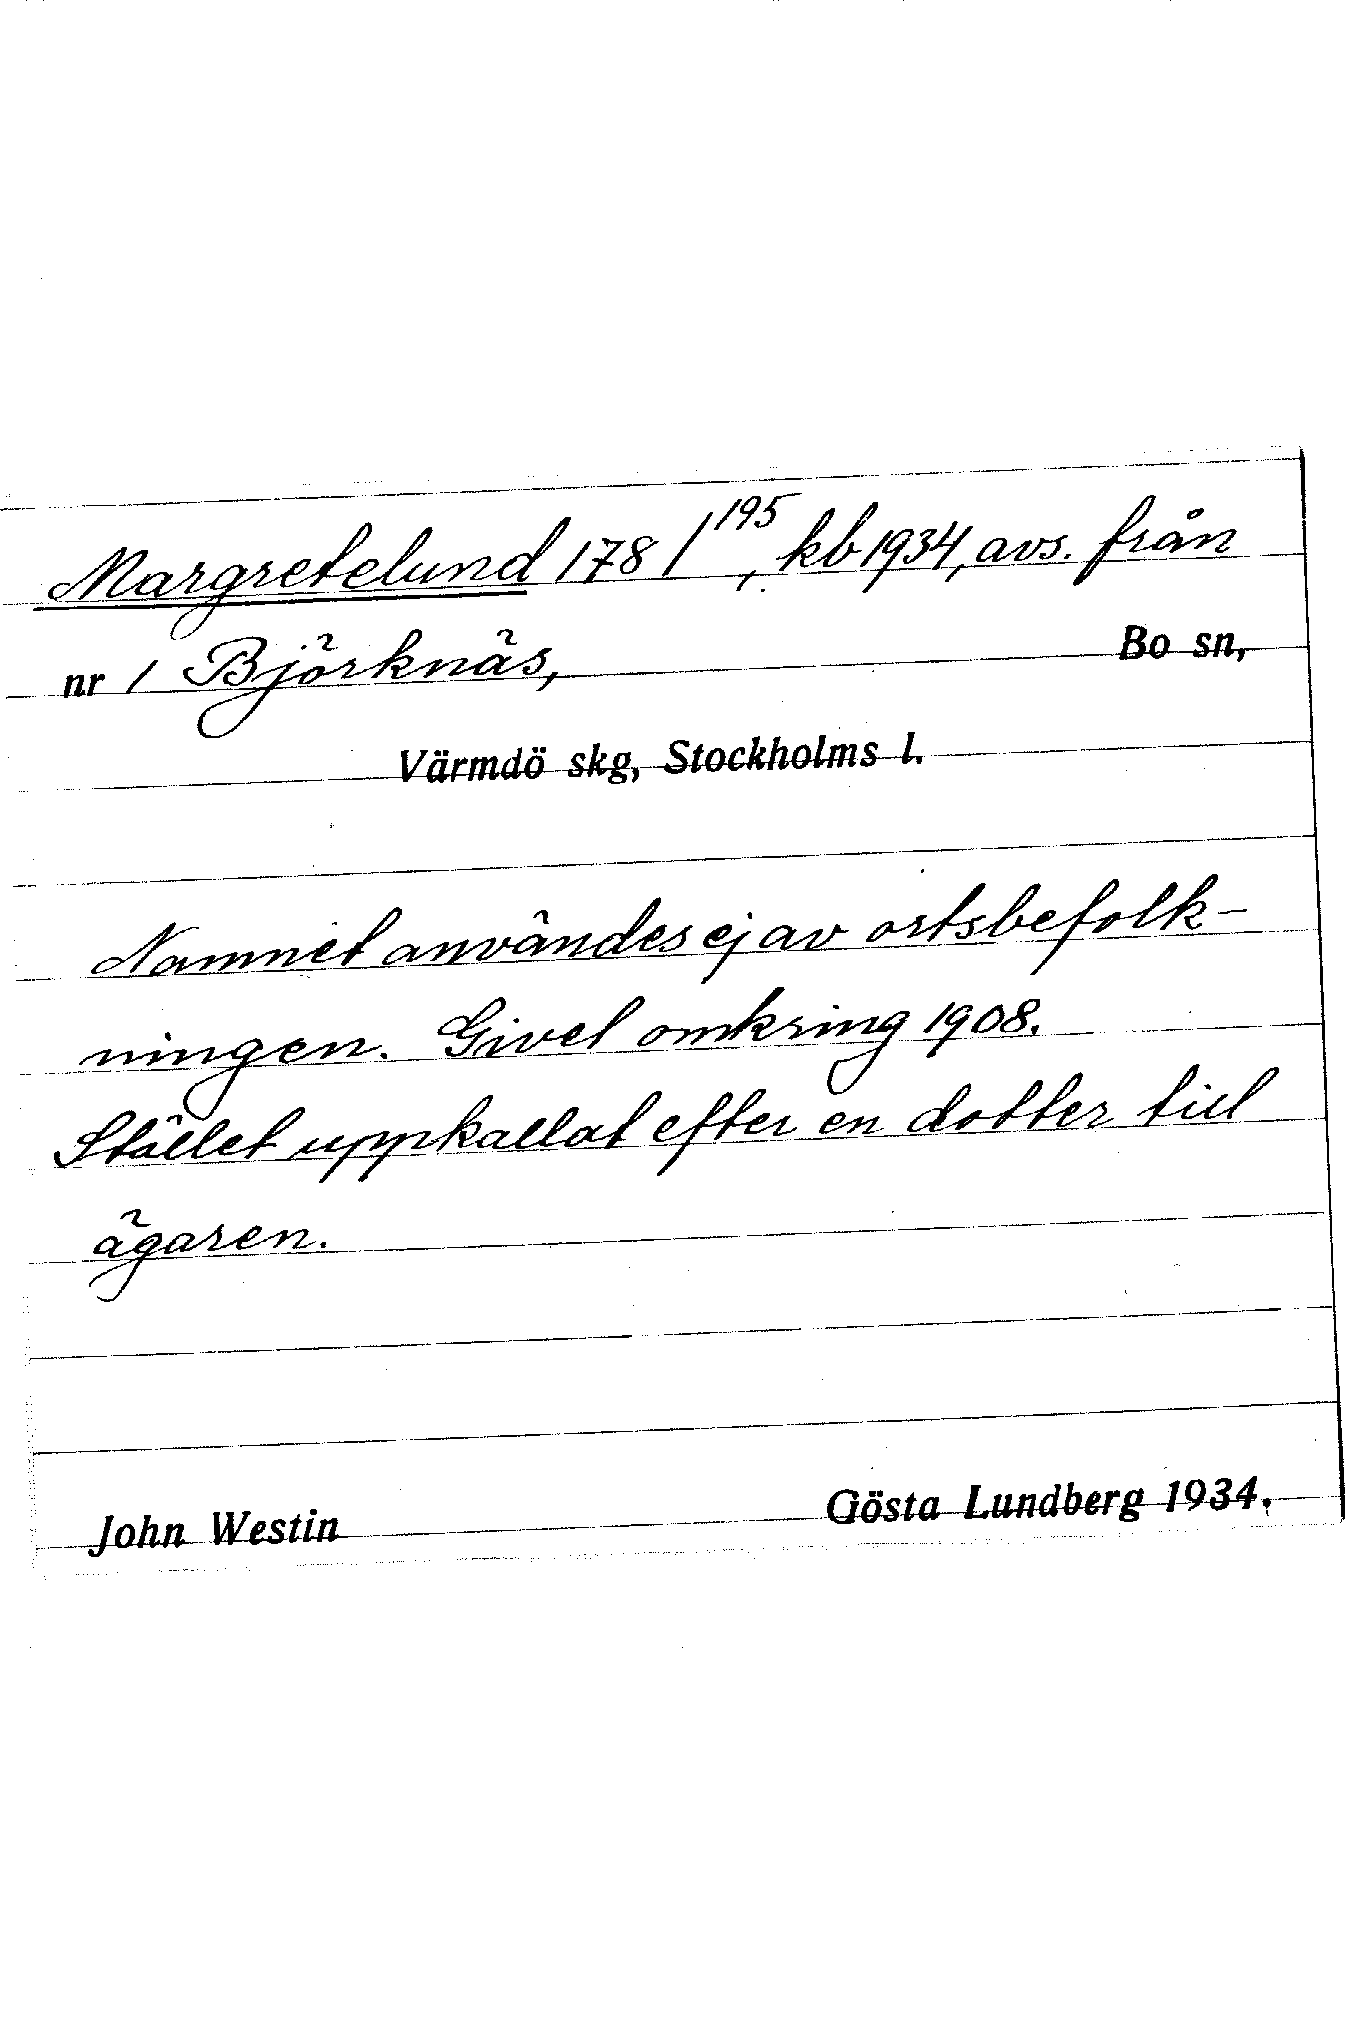 Margretelund 178 1/195, kb 1934, avs. från
nr 1 Björknäs, Bo sn,
Värmdö skg, Stockholms l.
Namnet användes ej av ortsbefolk-
ningen. Givet omkring 1908.
Stället uppkallat efter en dotter till
ägaren.
John Westin Gösta Lundberg 1934.